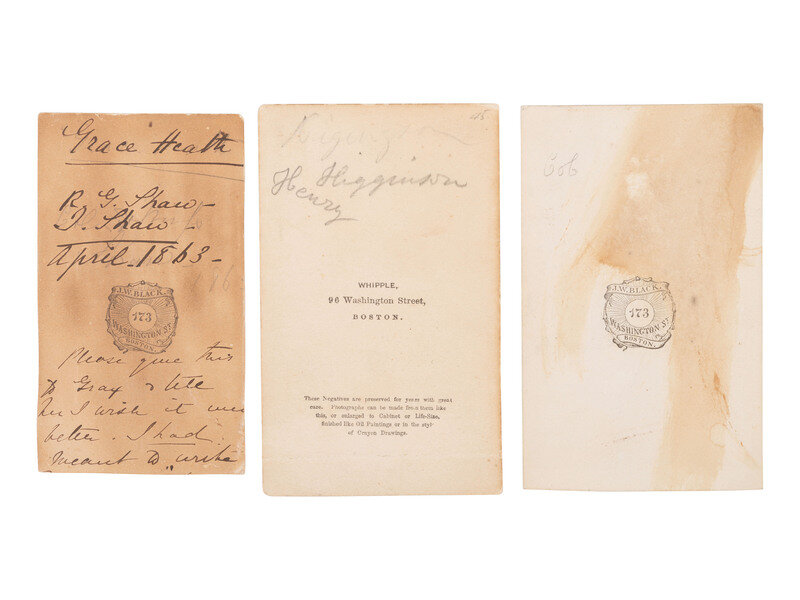 Grace Heath
R. G. Shaw -
April - 1863 -
J.W. BLACK.
173
WASHINGTON ST
BOSTON.
Please give this
to Gray & tell
her I wish it were
better. I had
meant to write
Higginson
Henry
WHIPPLE,
96 Washington Street,
BOSTON.
These Negatives are preserved for years with great
care. Photographs can be made from them like
this, or enlarged to Cabinet or Life-Size,
finished like Oil Paintings or in the style
of Crayon Drawings.
J.W. BLACK.
173
WASHINGTON ST
BOSTON.